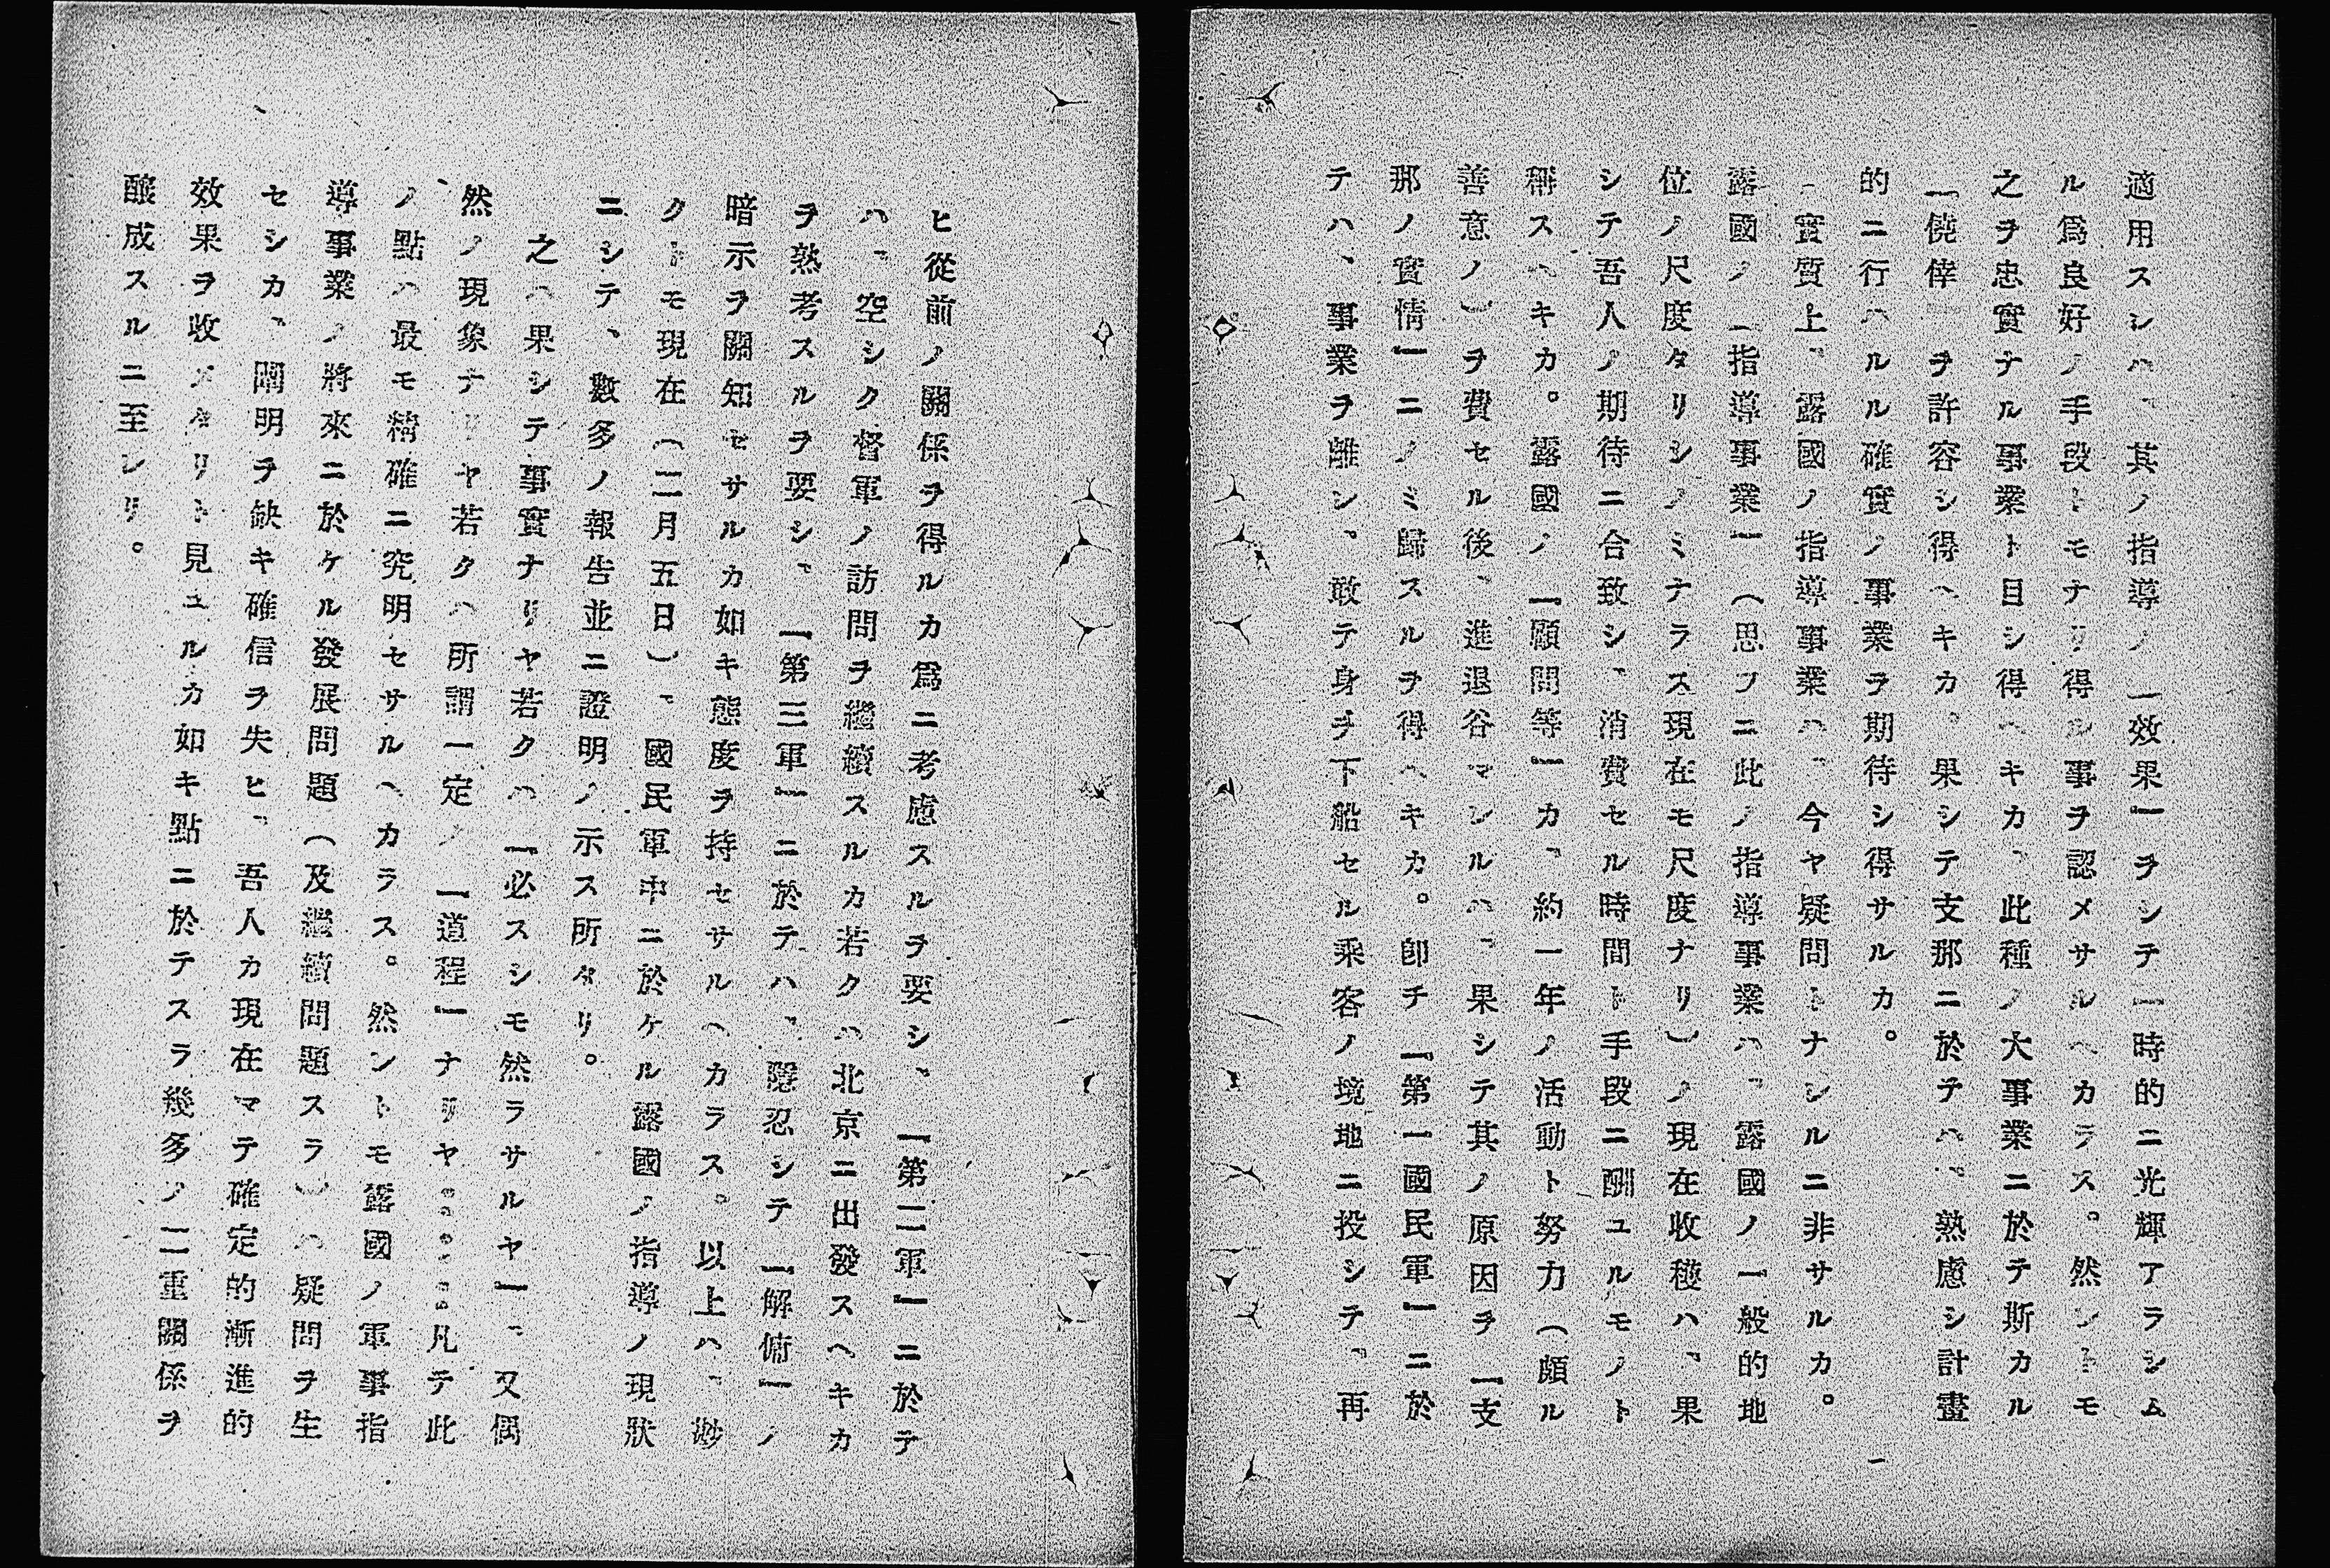 適用スレハ、其ノ指導ノ「效果」ヲシテ一時的ニ光輝アラシム
ル爲良好ノ手段トモナリ得ル事ヲ認メサルヘカラス。然レトモ
之ヲ忠實ナル事業ト目シ得ヘキカ、此種ノ大事業ニ於テ斯カル
「僥倖」ヲ許容シ得ヘキカ、果シテ支那ニ於テハ、熟慮シ計畫
的ニ行ハルル確實ノ事業ヲ期待シ得サルカ。
實質上、露國ノ指導事業ハ、今ヤ疑問トナレルニ非サルカ。
露國ノ「指導事業」(思フニ此ノ指導事業ハ、露國ノ一般的地
位ノ尺度タリシノミナラス現在モ尺度ナリ)ノ現在收穫ハ、果
シテ吾人ノ期待ニ合致シ、消費セル時間ト手段ニ酬ユルモノト
稱スヘキカ。露國ノ「顧問等」カ、約一年ノ活動ト努力(頗ル
善意ノ)ヲ費セル後、進退谷マレルハ、果シテ其ノ原因ヲ「支
那ノ實情」ニノミ歸スルヲ得ヘキカ。卽チ「第一國民軍」ニ於
テハ、事業ヲ離レ、敢テ身ヲ下船セル乘客ノ境地ニ投シテ、再
ヒ從前ノ關係ヲ得ルカ爲ニ考慮スルヲ要シ、「第二軍」ニ於テ
ハ、空シク督軍ノ訪問ヲ繼續スルカ若クハ北京ニ出發スヘキカ
ヲ熟考スルヲ要シ、「第三軍」ニ於テハ、隱忍シテ「解傭」ノ
暗示ヲ關知セサルカ如キ態度ヲ持セサルヘカラス。以上ハ、尠
クトモ現在(二月五日)、國民軍中ニ於ケル露國ノ指導ノ現狀
ニシテ、數多ノ報告並ニ證明ノ示ス所タリ。
之ハ果シテ事實ナリヤ若クハ「必スシモ然ラサルヤ」、又偶
然ノ現象ナリヤ若クハ所謂一定ノ「道程」ナリヤ……凡テ此
ノ點ハ最モ精確ニ究明セサルヘカラス。然レトモ露國ノ軍事指
導事業ノ將來ニ於ケル發展問題(及繼續問題スラ)ハ疑問ヲ生
セシカ、闡明ヲ缺キ確信ヲ失ヒ、吾人カ現在マテ確定的漸進的
效果ヲ收メタリト見ユルカ如キ點ニ於テスラ幾多ノ二重關係ヲ
釀成スルニ至レリ。